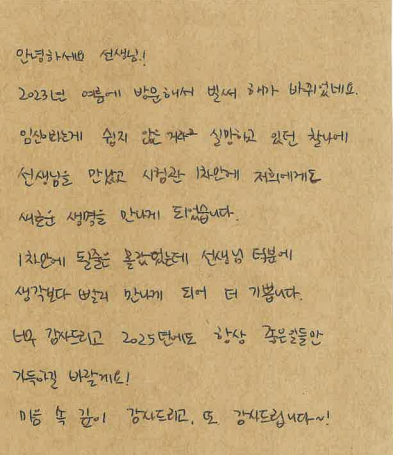 안녕하세요 선생님!
2023년 여름에 방문해서 벌써 해가 바뀌었네요.
임신이라는게 쉽지 않은 거라 실망하고 있던 찰나에
선생님을 만났고 시험관 1차만에 저희에게도
새로운 생명을 만나게 되었습니다.
1차만에 될줄은 몰랐었는데 선생님 덕분에
생각보다 빨리 만나게 되어 더 기쁩니다.
너무 감사드리고 2025년에도 항상 좋은일들만
가득하길 바랄게요!
마음 속 깊이 감사드리고, 또 감사드립니다~!